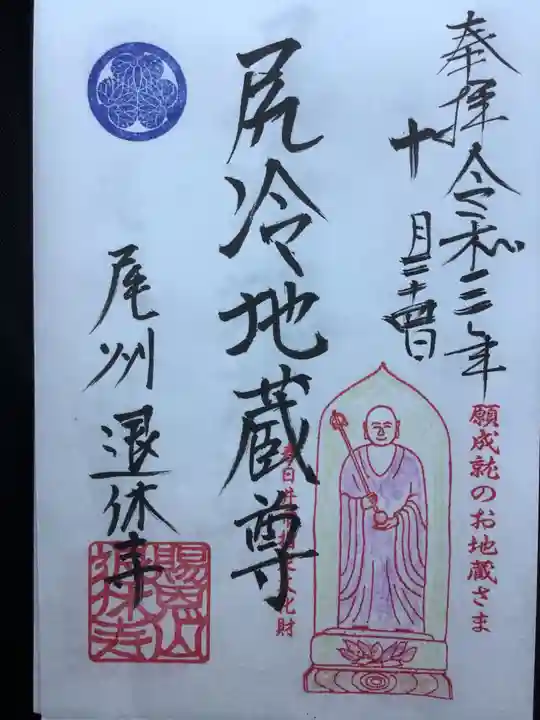 奉拝 令和三年
十月二十四日
願成就のお地蔵さま
尻冷地蔵尊
尾州 退休寺
賜恩山
退休寺